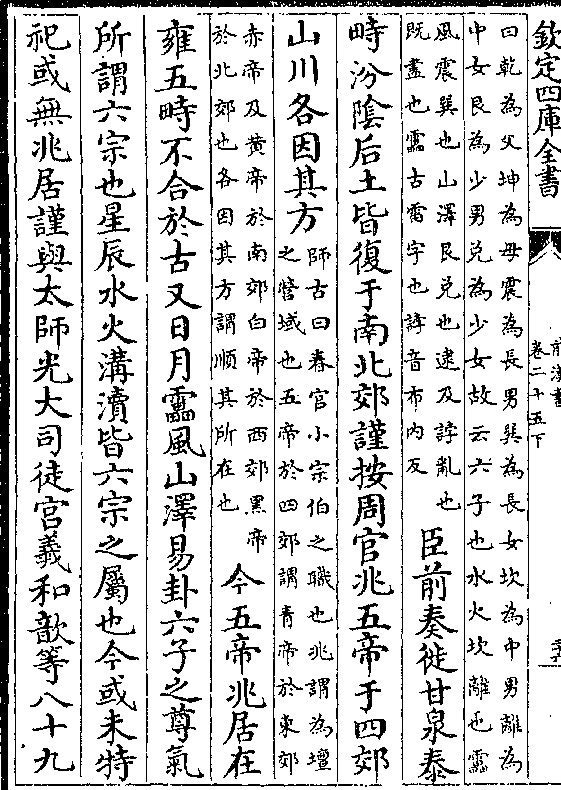 欽定四庫全書
前漢書
卷二十五下
曰乾為父坤為母震為長男巽為長女坎為中男離為
中女艮為少男兌為少女故云六子也水火坎離也靁
風震巽也山澤艮兌也逮及誖亂也
既盡也靁古雷字也誖音布内反
臣前奏徙甘泉泰
畤汾陰后土皆復于南北郊謹按周官兆五帝于四郊
山川各因其方
師古曰春官小宗伯之職也兆謂為壇
之營域也五帝於四郊謂青帝於東郊
赤帝及黄帝於南郊白帝於西郊黒帝
於北郊也各因其方謂順其所在也
今五帝兆居在
雍五畤不合於古又日月靁風山澤易卦六子之尊氣
所謂六宗也星辰水火溝瀆皆六宗之屬也今或未特
祀或無兆居謹與太師光大司徒宫義和歆等八十九